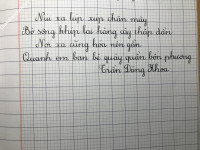 Núi xa lúp xúp chân mây
Bờ sông khép lại hàng cây thấp dần
Nơi xa cũng hóa nên gần
Quanh em bạn bè quây quần bốn phương
Trần Đăng Khoa